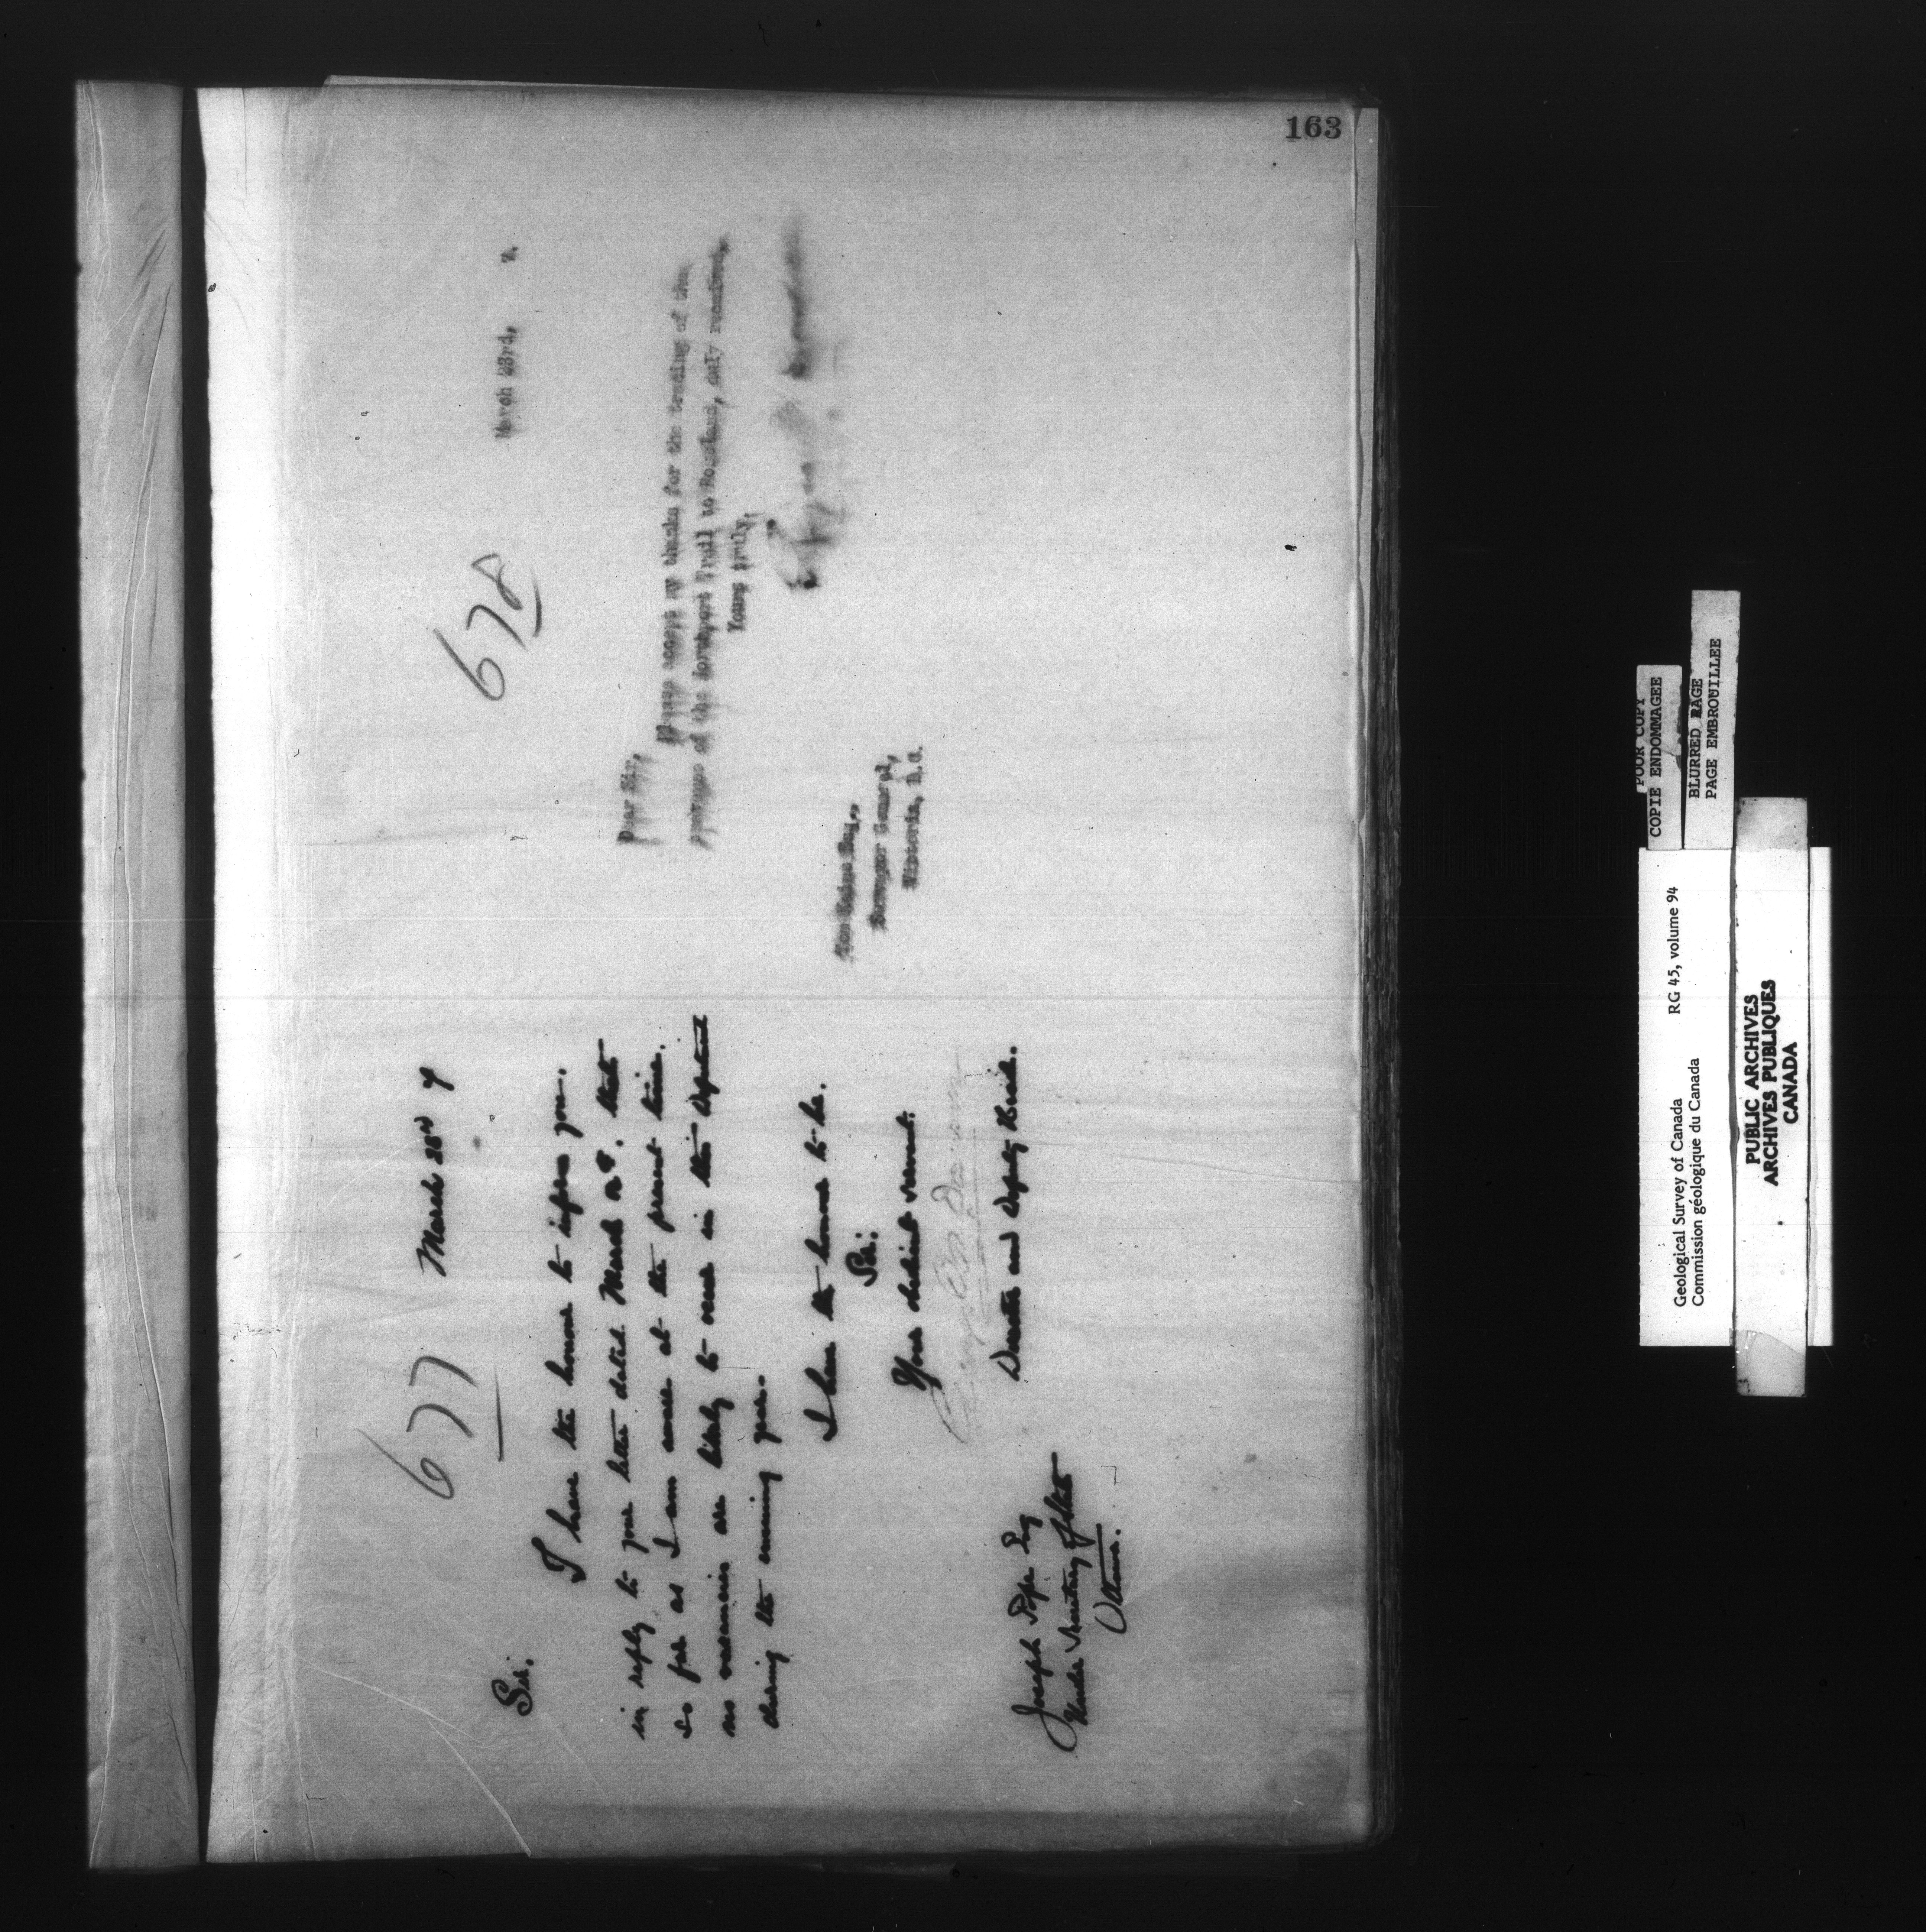 163
677
March 23rd 7
Sir:
I have the honour to inform you,
in reply to your letter dated March, that
so far as I am aware at the present time,
no vacancies are likely to occur in this Department
during the coming year.
I have the honour to be,
Sir:
Your obedient servant.
Director and Deputy Head.
Joseph Pope Esq
Under Secretary of State
Ottawa.
678
March 23rd, 7.
Dear Sir,
Please accept my thanks for the tracing of the
of the Northport Trail to Rossland, only received.
Yours truly,
Surveyor General,
Victoria, B.C.
POOR COPY
COPIE ENDOMMAGEE
BLURRED PAGE
PAGE EMBROUILLEE
Geological Survey of Canada RG 45, volume 94
Commission géologique du Canada
PUBLIC ARCHIVES
ARCHIVES PUBLIQUES
CANADA